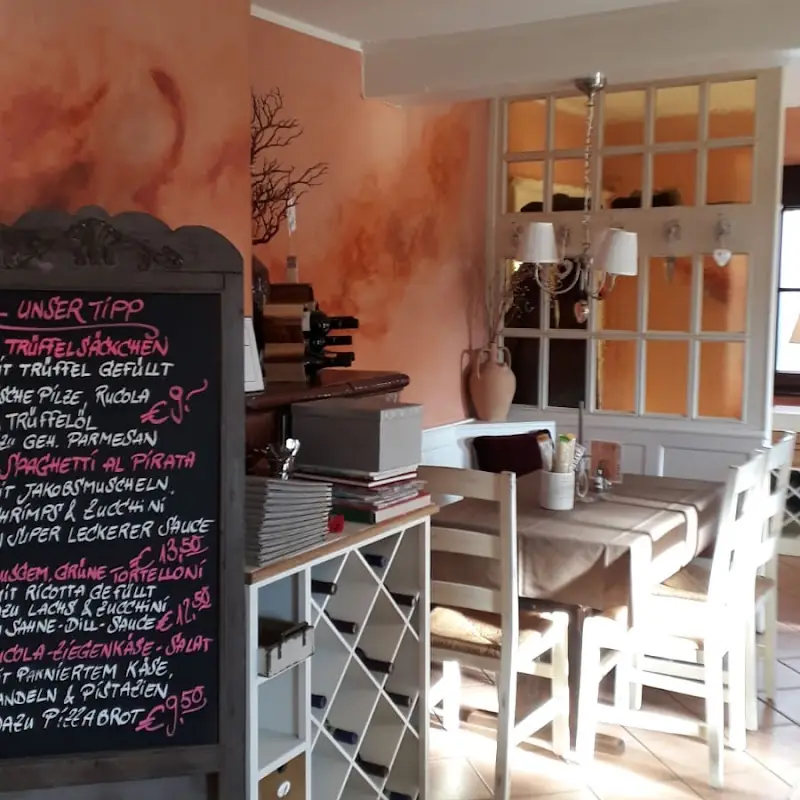 UNSER TIPP
TRÜFFELSÄCKCHEN
IT TRÜFFEL GEFÜLLT
ISCHE PILZE, RUCOLA
TRÜFFELÖL €9,-
ZU GEH. PARMESAN
SPAGHETTI AL PIRATA
IT JAKOBSMUSCHELN,
HRIMPS & ZUCCHINI
SUPER LECKERER SAUCE
€13,50
USGEM. GRÜNE TORTELLONI
IT RICOTTA GEFÜLLT
AZU LACHS & ZUCCHINI
SAHNE-DILL-SAUCE €12,50
UCOLA-ZIEGENKÄSE-SALAT
IT PANIERTEM KÄSE,
ANDELN & PISTAZIEN
DAZU PIZZABROT €9,50